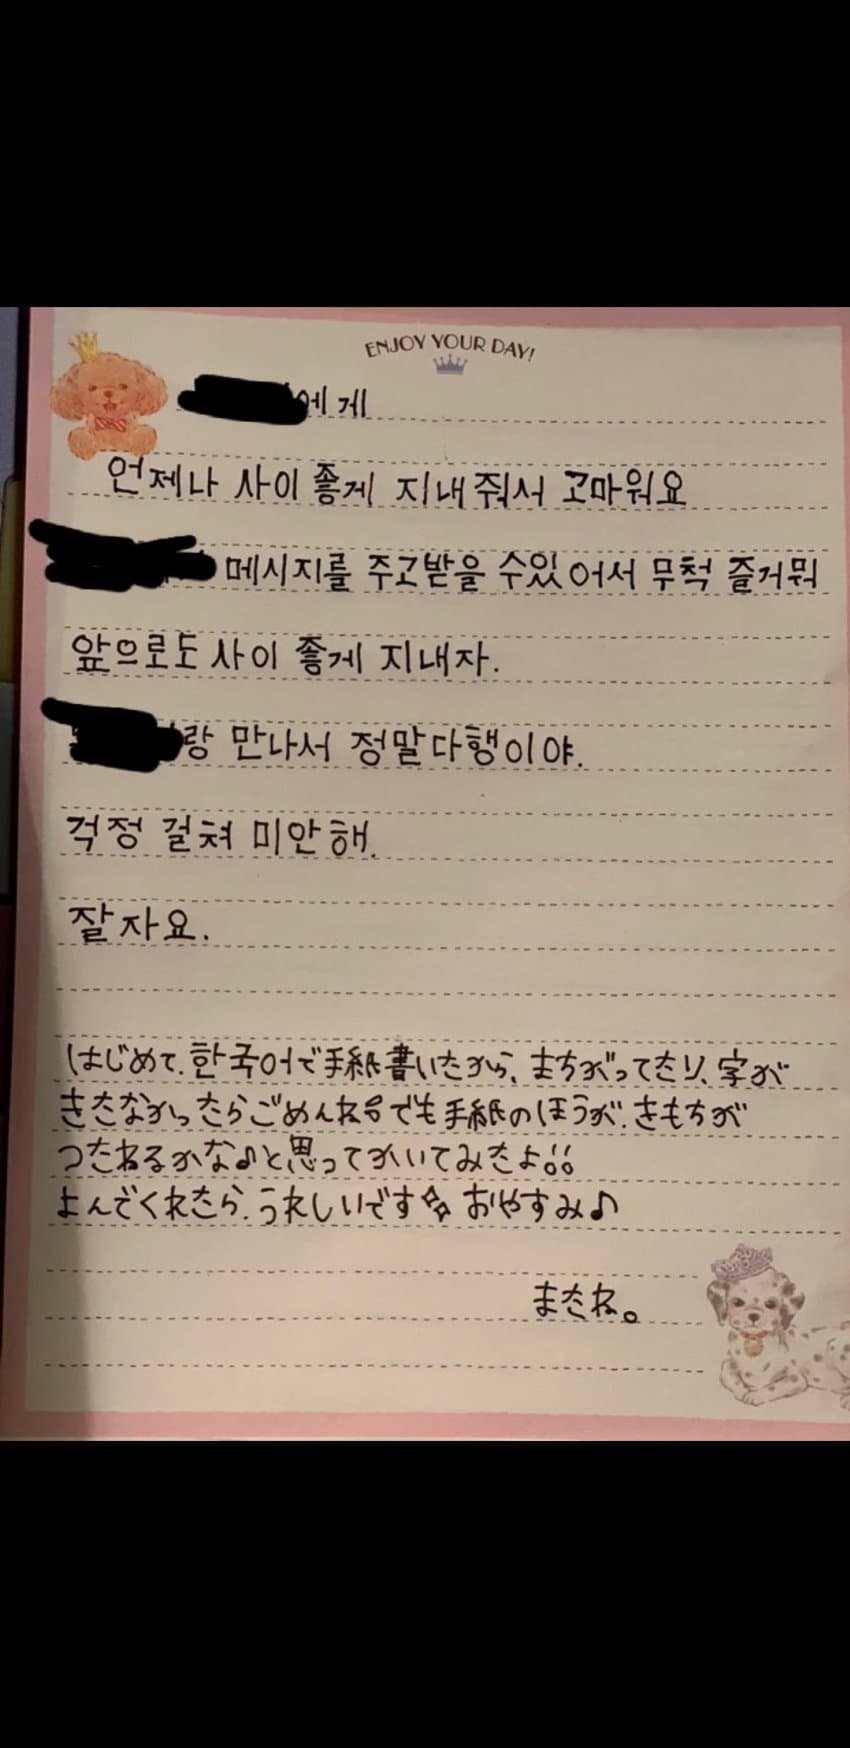 ENJOY YOUR DAY!
에게
언제나 사이 좋게 지내줘서 고마워요
메시지를 주고받을 수있어서 무척 즐거뭐
앞으로도 사이 좋게 지내자.
랑 만나서 정말다행이야.
걱정 걸쳐 미안해.
잘자요.
はじめて、한국어で手紙書いたから、まちがってたり、字が
きたなかったらごめんねでも手紙のほうが、きもちが
つたわるかな♪と思ってかいてみたよ!!
よんでくれたら、うれしいです おやすみ♪
またね。